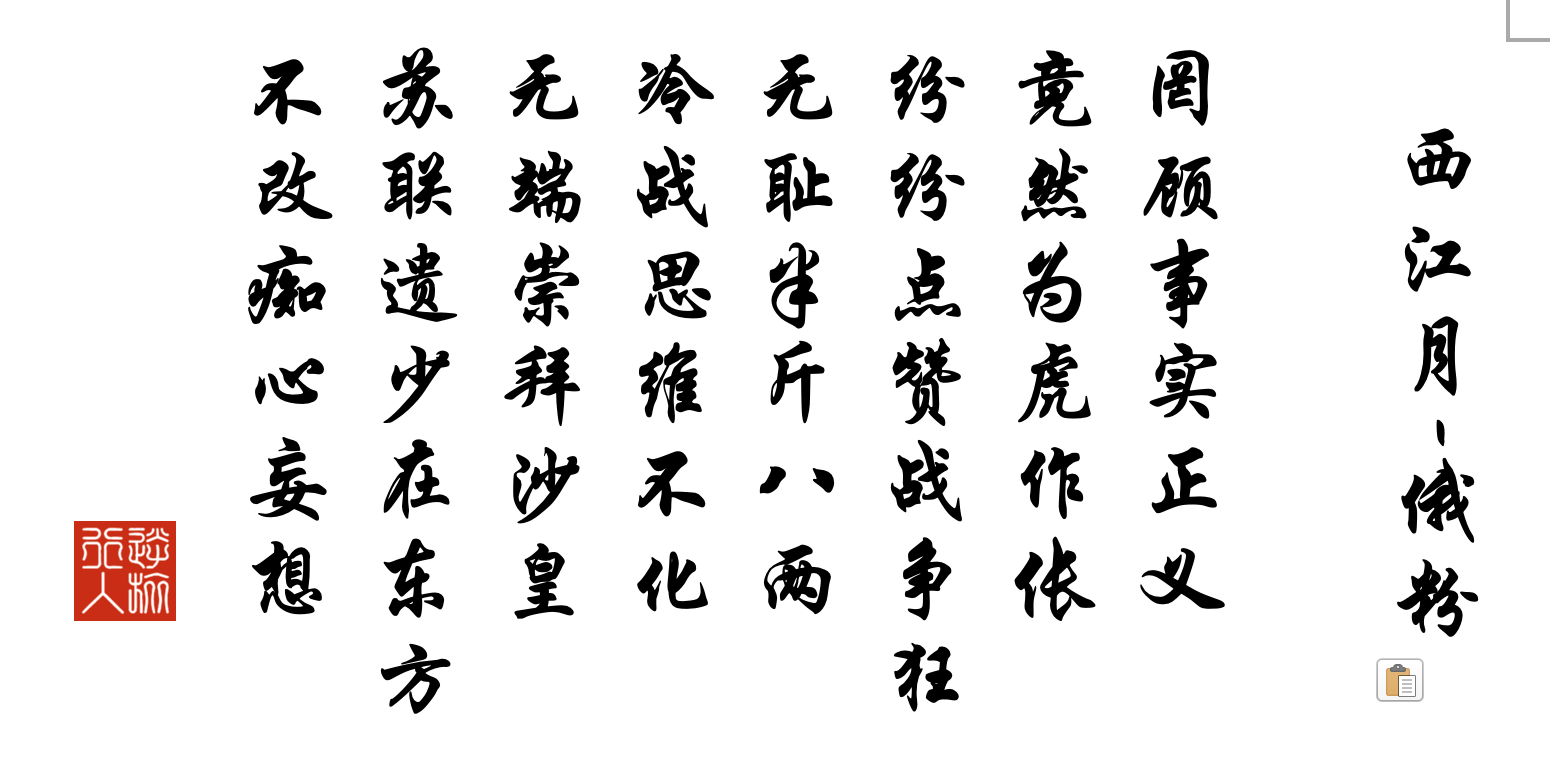 西江月-俄粉
罔顾事实正义
竟然为虎作伥
纷纷点赞战争狂
无耻半斤八两
冷战思维不化
无端崇拜沙皇
苏联遗少在东方
不改痴心妄想